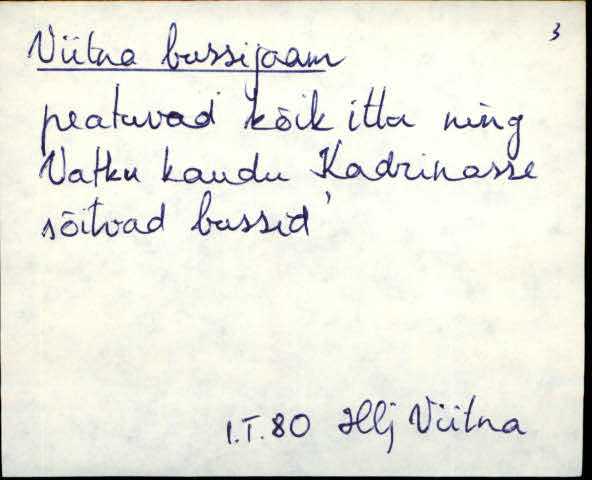 3
Viitna bussijaam
peatuvad kõik itta ning
Vatku kaudu Kadrinasse
sõitvad bussid
I.T. 80 Hlj Viitna